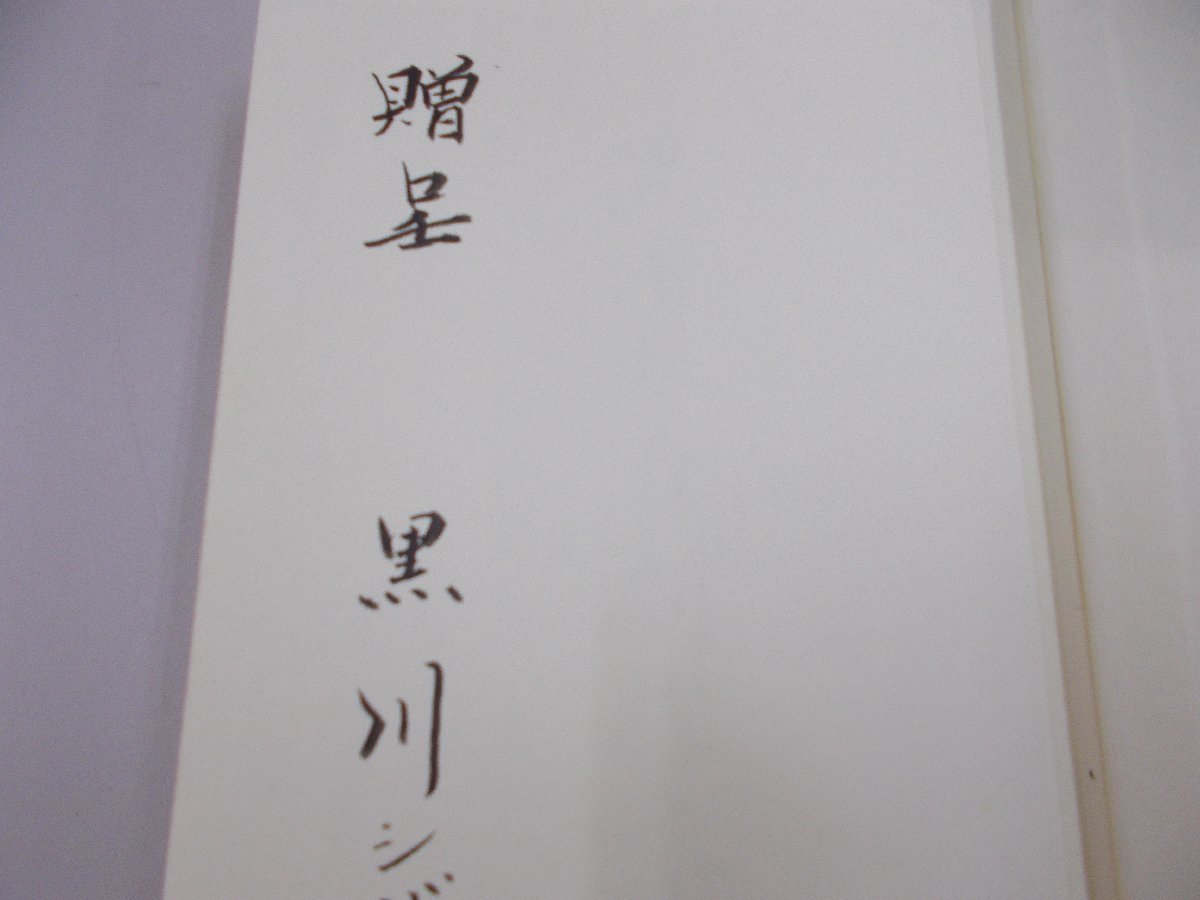 贈呈
黒川シ